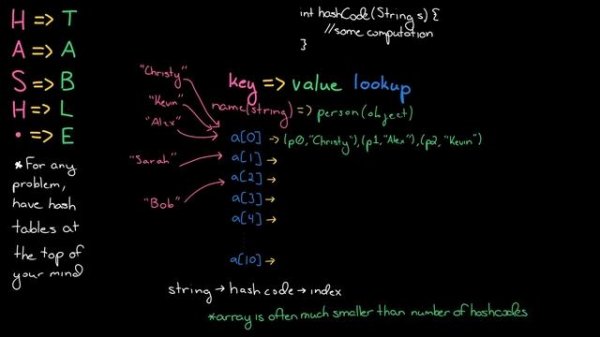 H => T
A => A
S => B
H => L
• => E
*For any
problem,
have hash
tables at
the top of
your mind
int hashCode(String s) {
//some computation
}
key => value lookup
name(string) => person(object)
"Christy"
"Kevin"
"Alex"
"Sarah"
"Bob"
a[0] → (p0,"Christy"),(p1,"Alex"),(p2,"Kevin")
a[1] →
a[2] →
a[3] →
a[4] →
a[10] →
string → hashcode → index
*array is often much smaller than number of hashcodes